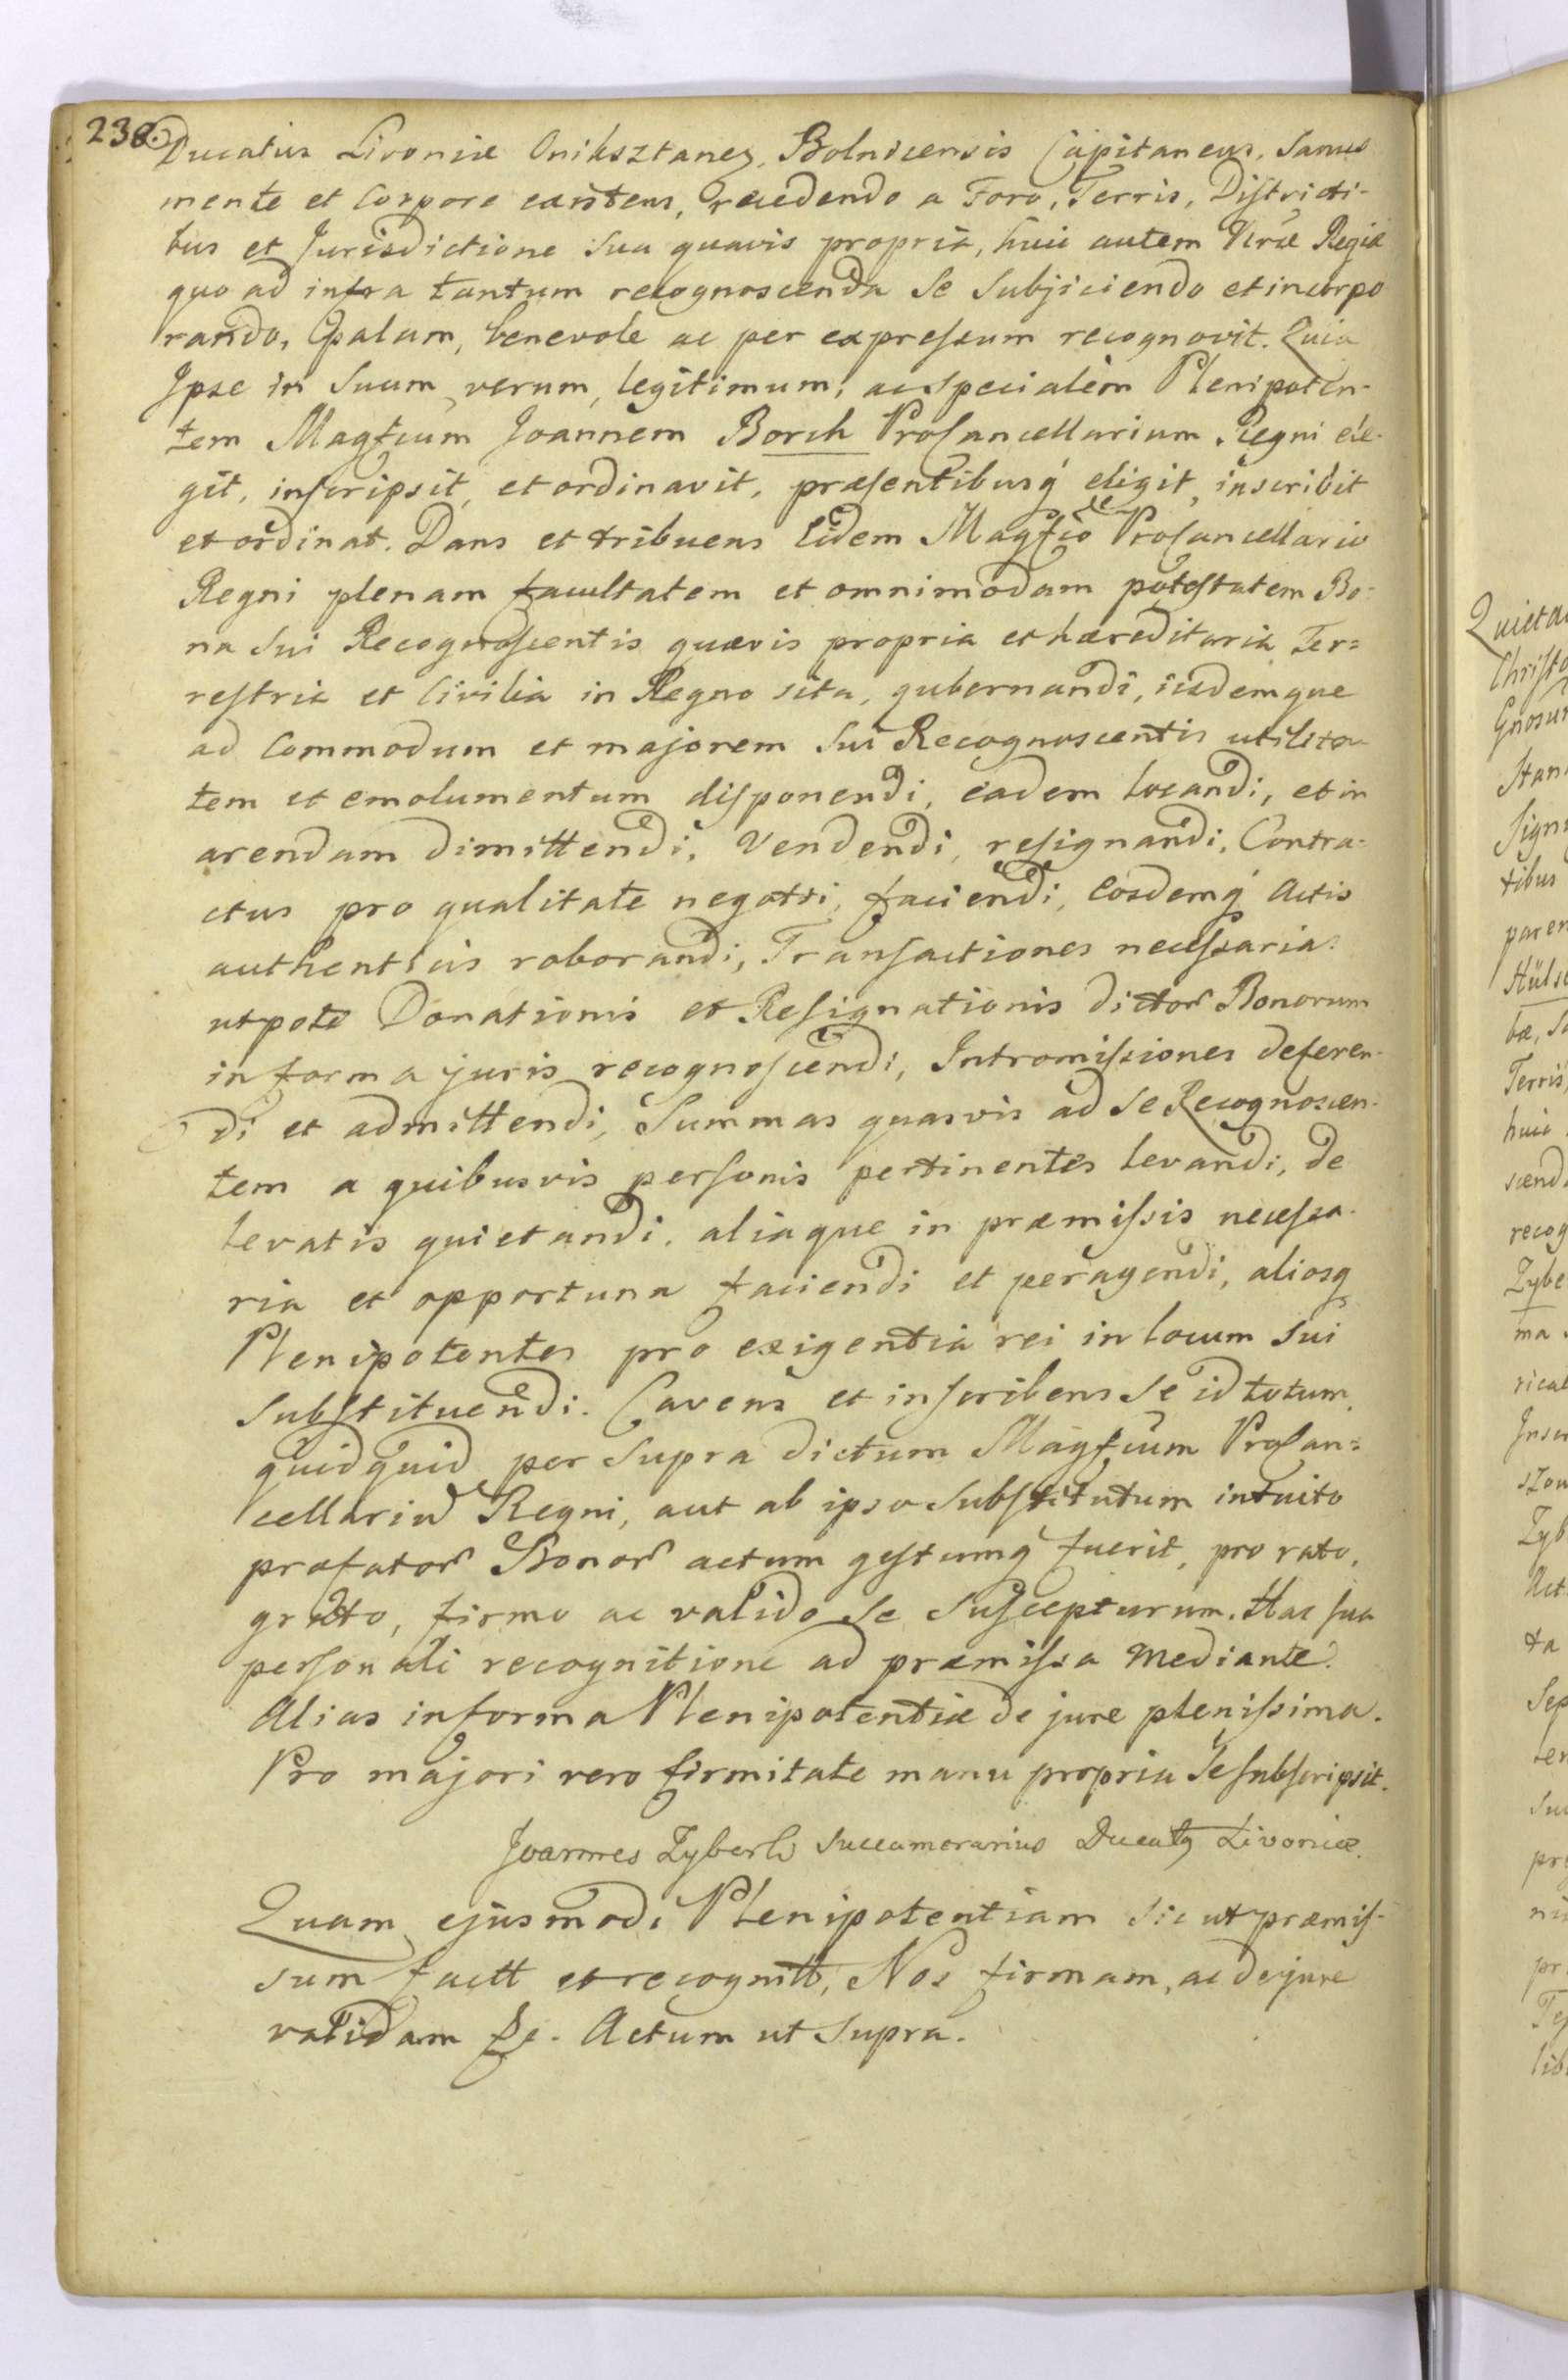 238.
Ducatus Livoniæ Oniksztanes, Bolnicensis Capitaneus, Sanus
mente et Corpore existens, recedendo a Foro, Terris, Districti-
bus et Jurisdictione Sua quavis propria, huic autem Regiæ
quo ad infra tantum recognoscenda Se Subjiciendo et incorpo
rando, Palam, benevole ac per expressum recognovit. Quia
Ipse in Suum, verum, legitimum, ac specialem Plenipoten-
tem Magfcum Joannem Borch ProCancellarium Regni ele-
git, inscripsit, et ordinavit, præsentibusq eligit, inscribit
et ordinat. Dans et tribuens Eidem Magfco ProCancellario
Regni plenam facultatem et omnimodam potestatem Bo-
na Sui Recognoscentis quævis propria et hæreditaria Ter=
restria et Civilia in Regno sita, gubernandi, iisdemque
ad Commodum et majorem Sui Recognoscentis utilita-
tem et emolumentum disponendi, eadem locandi, et in
arendam dimittendi, Vendendi, resignandi, Contra-
ctus pro qualitate negotii, faciendi, Eosdemq Actis
authenticis roborandi, Transactiones necessarias
utpote Donationis et Resignationis dictor Bonorum
in forma juris recognoscendi, Intromissiones deferen-
di et admittendi, Summas quasvis ad Se Recognoscen-
tem a quibusvis personis pertinentes levandi, de
levatis quietandi, aliaque in præmissis necessa-
ria et opportuna faciendi et peragendi, aliosq
Plenipotentes pro exigentia rei in locum Sui
Substituendi. Cavens et inscribens Se id totum,
quidquid per Supra dictum Magfcum ProCan=
cellarium Regni, aut ab ipso Substitutum intuito
præfator Bonor actum gestumq fuerit, pro rato,
grato, firmo ac valido Se Suscepturum. Hac sua
personali recognitione ad præmissa Mediante.
Alias in forma Plenipotentiæ de jure plenissima.
Pro majori vero firmitate manu propria Se subscripsit.
Joannes Zyberk Succamerarius Ducatq Livoniæ.
Quam ejusmodi Plenipotentiam Sic ut præmis-
sum factt et recognitt, Nos firmam, ac de jure
validam &c. Actum ut Supra.